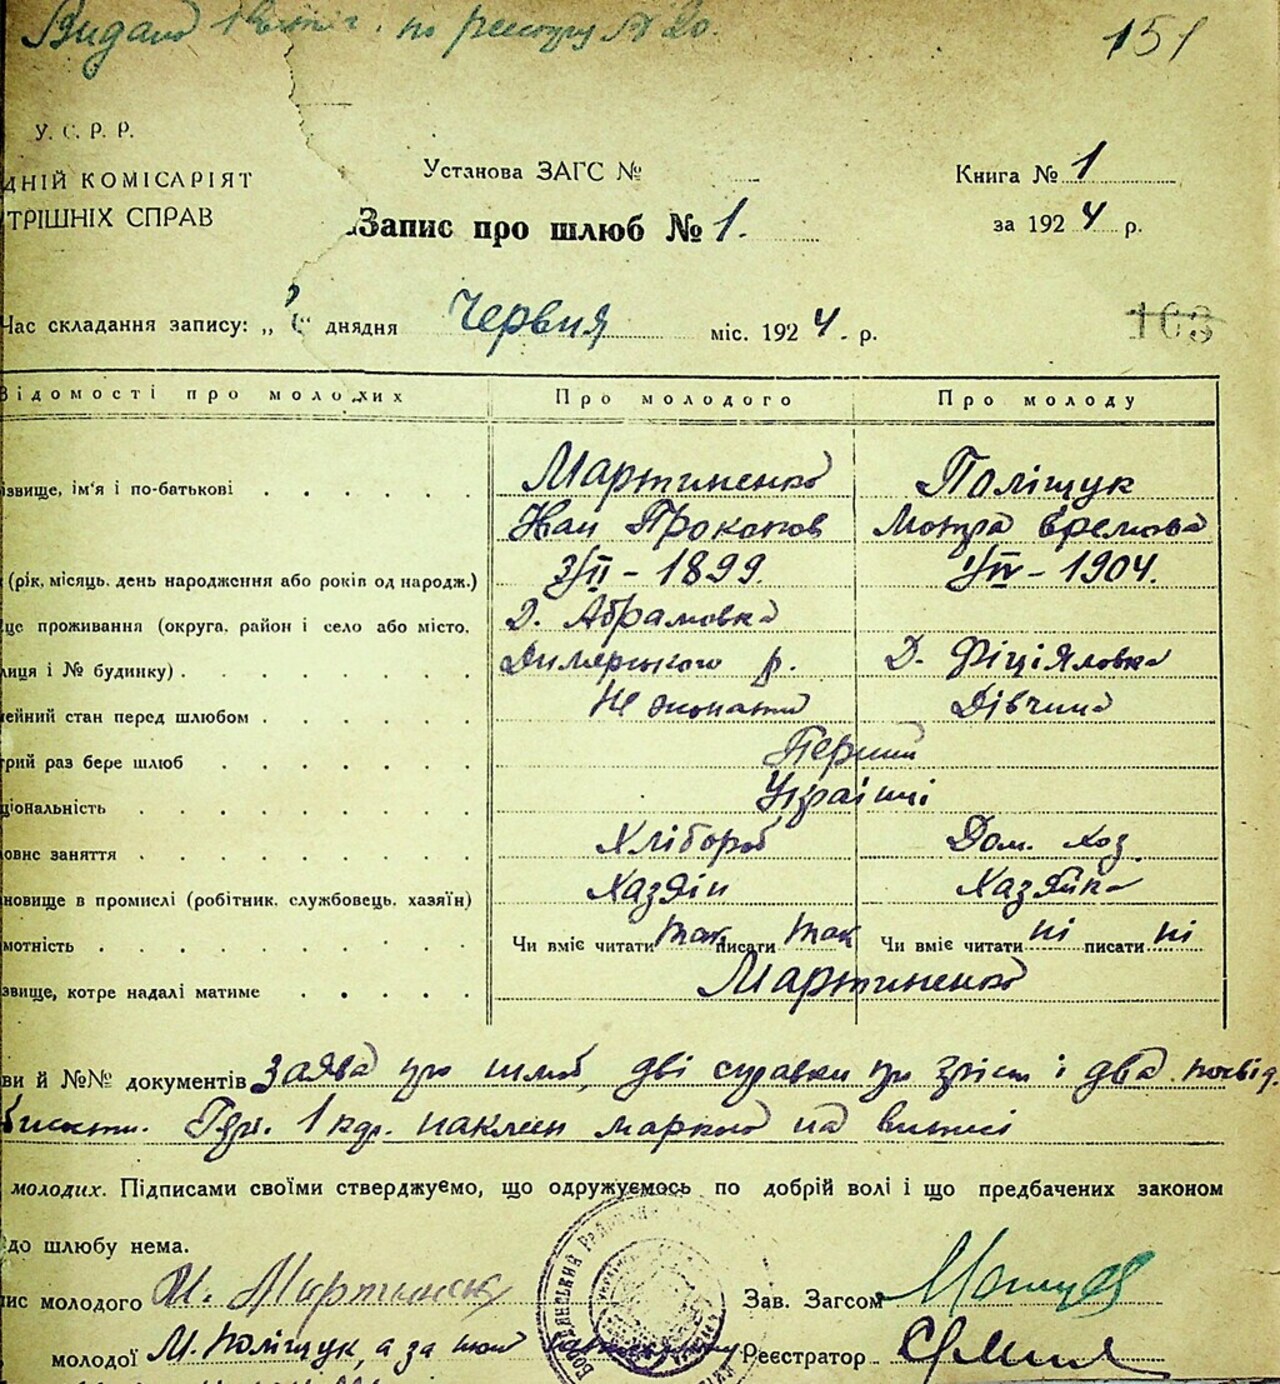 Видано по реєстру № 20.
151
У. С. Р. Р.
ДНІЙ КОМІСАРІЯТ
ТРІШНІХ СПРАВ
Установа ЗАГС №
Книга № 1
Запис про шлюб № 1.
за 1924 р.
Час складання запису: „ “ днядня Червня міс. 1924. р.
103
Відомості про молодих Про молодого Про молоду
ізвище, ім'я і по-батькові Мартиненко Поліщук
Іван Прокопов Мотря Єремова
(рік, місяць, день народження або років од народж.) 3/II - 1899. 1/IV - 1904.
це проживання (округа, район і село або місто, Д. Абрамовка
лиця і № будинку) Димерського р. Д. Фіціяловка
ейний стан перед шлюбом Не жонатий Дівчина
рий раз бере шлюб Перший
ціональність Українці
овне заняття Хлібороб Дом. хоз.
новище в промислі (робітник, службовець, хазяїн) Хазяїн Хазяйка
мотність Чи вміє читати так писати так Чи вміє читати ні писати ні
звище, котре надалі матиме Мартиненко
ви й №№ документів Заява про шлюб, дві справки про зріст і два посвід.
Гер. 1 кар. наклеен маркою на виписі
молодих. Підписами своїми стверджуємо, що одружуємось по добрій волі і що предбачених законом
до шлюбу нема.
ис молодого И. Мартиненко Зав. Загсом
молодої М. Поліщук, а за Реєстратор
БОРОДЯНСЬКИЙ